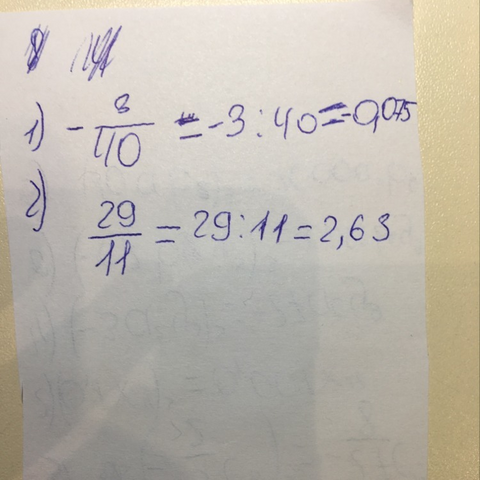 1) - 3/40 = -3:40 = -0,075
2) 29/11 = 29:11 = 2,63